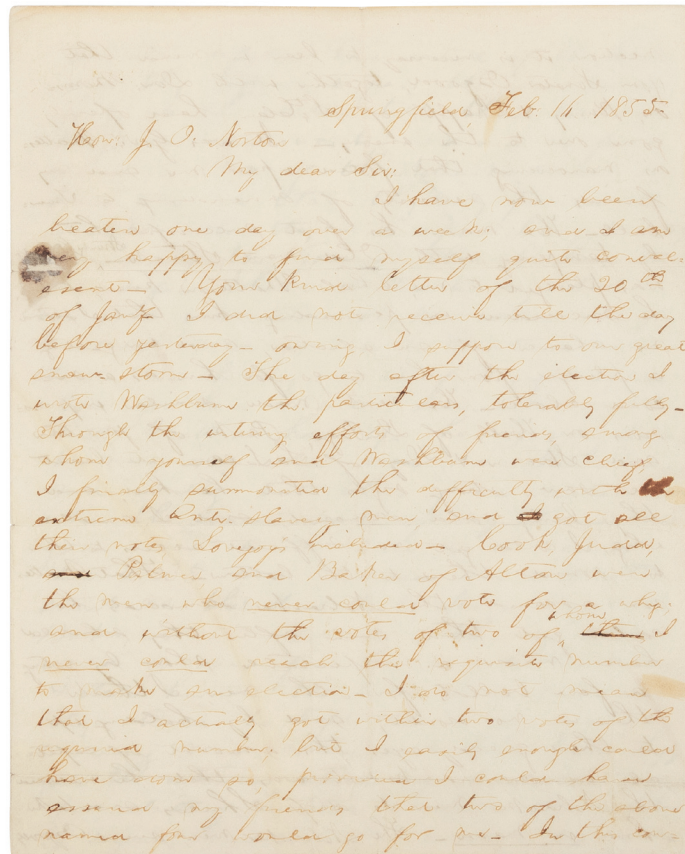 Springfield, Feb. 16 1855
Hon: J. O. Norton
My dear Sir:
I have now been
beaten one day over a week; and I am
very happy to find myself quite conval-
escent— Your kind letter of the 20th
of Jany I did not receive till the day
before yesterday— owing, I suppose to our great
snow-storm— The day after the election I
wrote Washburne the particulars, tolerably fully—
Through the untiring efforts of friends, among
whom yourself and Washburne were chief,
I finally surmounted the difficulty with the
extreme Anti-slavery men, and got all
their votes, Lovejoys included— Cook, Judd,
and Palmer and Baker of Alton were
the men who never could vote for a whig;
and without the votes of two of whom I
never could reach the requisite number
to make an election— I do not mean
that I actually got within two votes of the
required number; but I easily enough could
have done so, provided I could have
assured my friends that two of the above
named four would go for me— In this con-